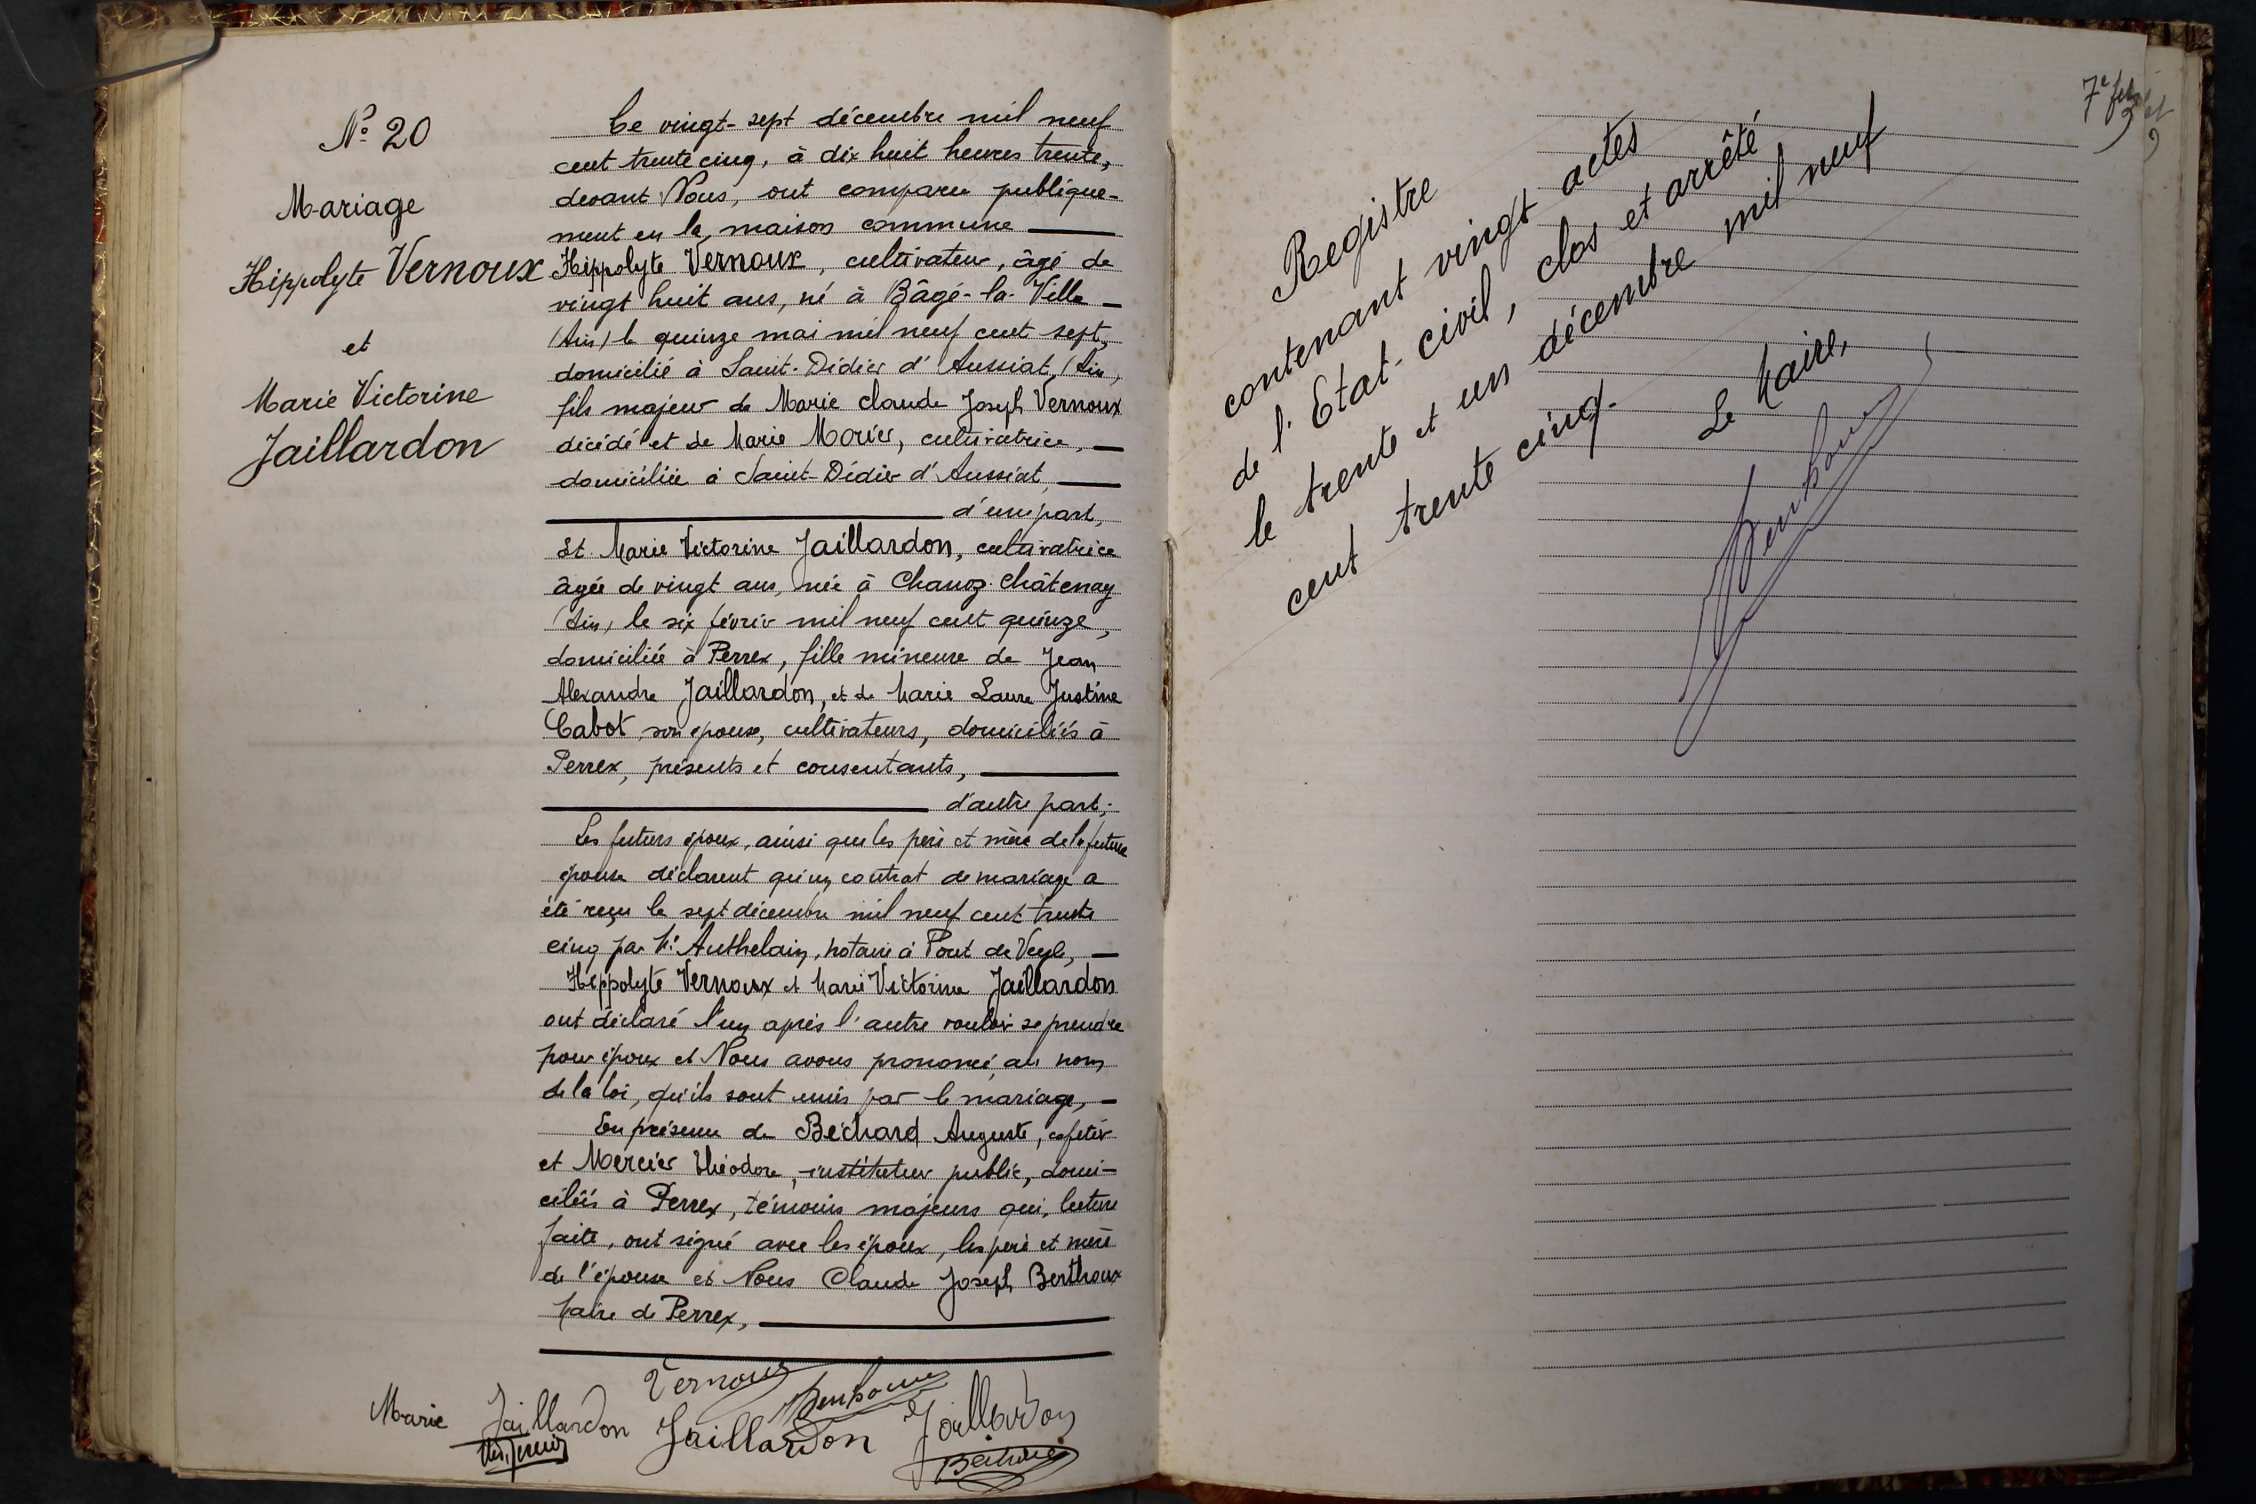 N° 20
Mariage
Hippolyte Vernoux
et
Marie Victorine
Jaillardon
Le vingt-sept décembre mil neuf
cent trente cinq, à dix huit heures trente,
devant Nous, ont comparu publique-
ment en la maison commune
Hippolyte Vernoux, cultivateur, âgé de
vingt huit ans, né à Bâgé-la-Ville
(Ain) le quinze mai mil neuf cent sept,
domicilié à Saint-Didier d'Aussiat, (Ain),
fils majeur de Marie Claude Joseph Vernoux
décédé et de Marie Morier, cultivatrice,
domiciliée à Saint-Didier d'Aussiat,
d'une part,
Et Marie Victorine Jaillardon, cultivatrice
âgée de vingt ans, née à Chanoz-Châtenay
(Ain) le six février mil neuf cent quinze,
domiciliée à Perrex, fille mineure de Jean
Alexandre Jaillardon, et de Marie Laure Justine
Cabot, son épouse, cultivateurs, domiciliés à
Perrex, présents et consentants,
d'autre part;
Les futurs époux, ainsi que les père et mère de la future
épouse déclarent qu'un contrat de mariage a
été reçu le sept décembre mil neuf cent trente
cinq par Me Authelain, notaire à Pont de Veyle,
Hippolyte Vernoux et Marie Victorine Jaillardon
ont déclaré l'un après l'autre vouloir se prendre
pour époux et Nous avons prononcé, au nom
de la loi, qu'ils sont unis par le mariage,
En présence de Béchard Auguste, cafetier
et Mercier Théodore, instituteur public, domi-
ciliés à Perrex, témoins majeurs qui, lecture
faite, ont signé avec les époux, les père et mère
de l'épouse et Nous Claude Joseph Berthoux
Maire de Perrex,
Vernoux
Marie Jaillardon Jaillardon Jaillardon
7e
Registre
contenant vingt actes
de l'Etat-civil, clos et arrêté
le trente et un décembre mil neuf
cent trente cinq.
Le Maire,